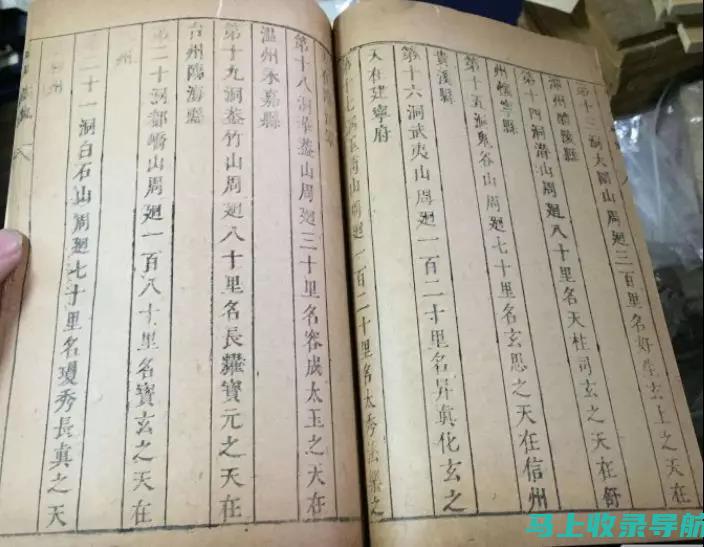 第十三洞大圍山周廻三百里名好生玄上之天在
潭州醴陵縣
第十四洞潛山周廻八十里名天柱司玄之天在舒
州懷寧縣
第十五洞鬼谷山周廻七十里名玄思之天在信州
貴溪縣
第十六洞武夷山周廻一百二十里名昇真化玄之
天在建寧府
第十七洞玉笥山周廻一百二十里名太秀法樂之
天在
第十八洞華蓋山周廻三十里名容成太玉之天在
溫州永嘉縣
第十九洞蓋竹山周廻八十里名長耀寶元之天在
台州臨海縣
第二十洞都嶠山周廻一百八十里名寶玄之天在
州
二十一洞白石山周廻七十里名瓊秀長真之天
州
马上收录导航